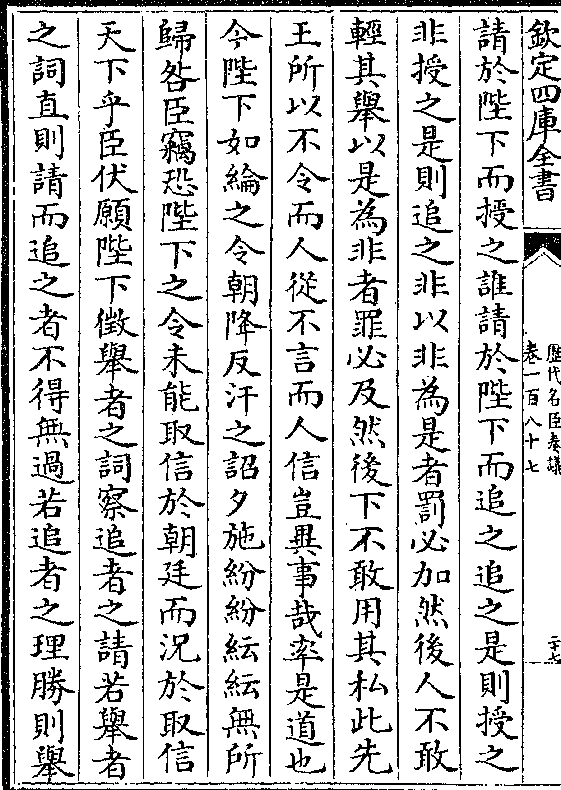 欽定四庫全書
歷代名臣奏議
卷一百八十七
二十七
請於陛下而授之誰請於陛下而追之追之是則授之
非授之是則追之非以非為是者罰必加然後人不敢
輕其舉以是為非者罪必及然後下不敢用其私此先
王所以不令而人從不言而人信豈異事哉率是道也
今陛下如綸之令朝降反汗之詔夕施紛紛紜紜無所
歸咎臣竊恐陛下之令未能取信於朝廷而況於取信
天下乎臣伏願陛下徵舉者之詞察追者之請若舉者
之詞直則請而追之者不得無過若追者之理勝則舉